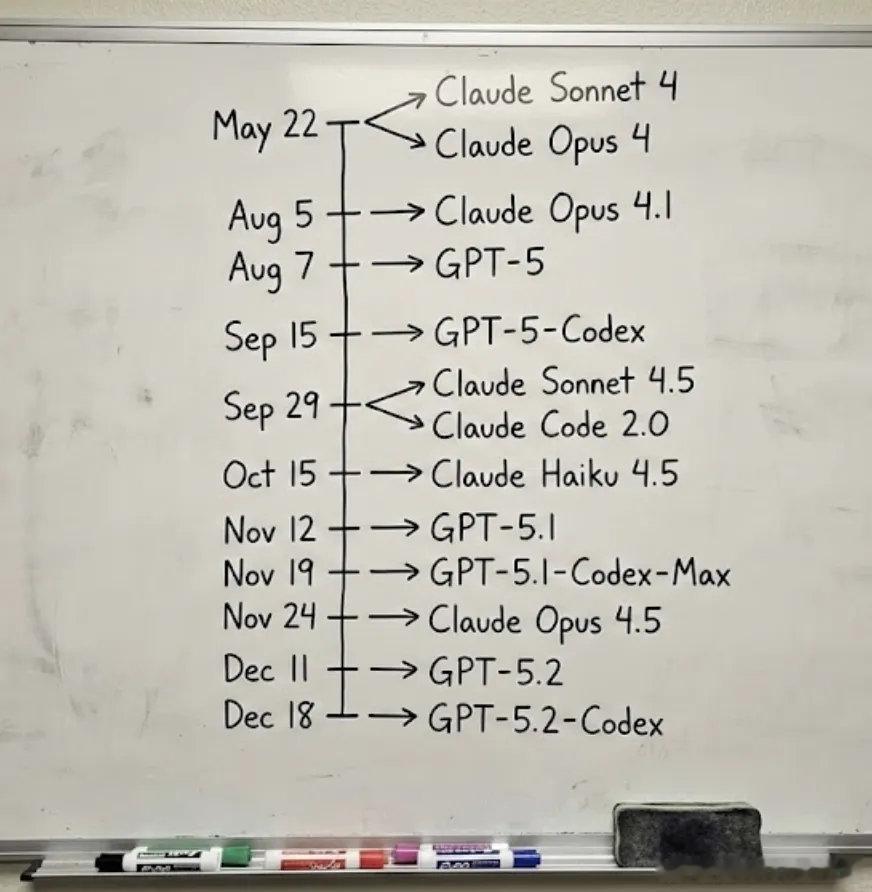 May 22 Claude Sonnet 4
Claude Opus 4
Aug 5 Claude Opus 4.1
Aug 7 GPT-5
Sep 15 GPT-5-Codex
Sep 29 Claude Sonnet 4.5
Claude Code 2.0
Oct 15 Claude Haiku 4.5
Nov 12 GPT-5.1
Nov 19 GPT-5.1-Codex-Max
Nov 24 Claude Opus 4.5
Dec 11 GPT-5.2
Dec 18 GPT-5.2-Codex